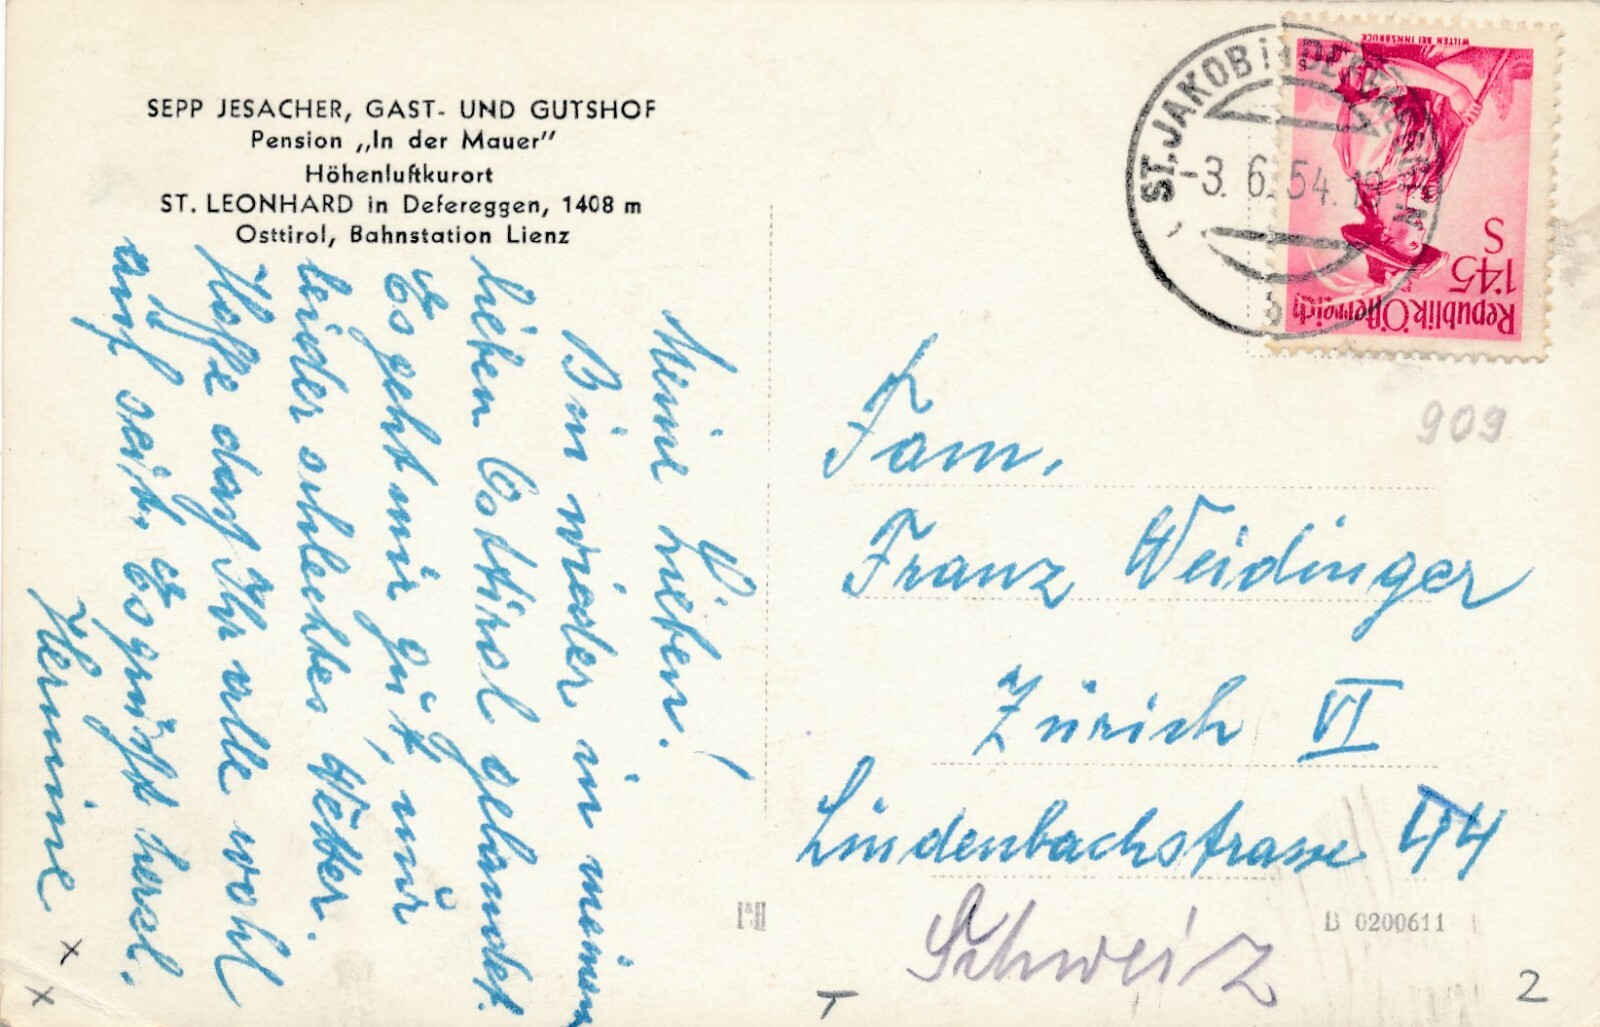 SEPP JESACHER, GAST- UND GUTSHOF
Pension „In der Mauer"
Höhenluftkurort
ST. LEONHARD in Defereggen, 1408 m
Osttirol, Bahnstation Lienz
Meine Lieben!
Bin wieder in meinem
lieben Osttirol gelandet.
Es geht mir gut, nur
leider schlechtes Wetter.
Hoffe daß Ihr alle wohl
auf seit. Es grüßt herzl.
Hermine
x
x
ST. JAKOB i. DEFEREGGEN
-3. 6. 54.
b
WILTEN BEI INNSBRUCK
S
1'45
Republik Österreich
909
Fam.
Franz Weidinger
Zürich VI
Lindenbachstrasse 44
Schweiz
B 0200611
2